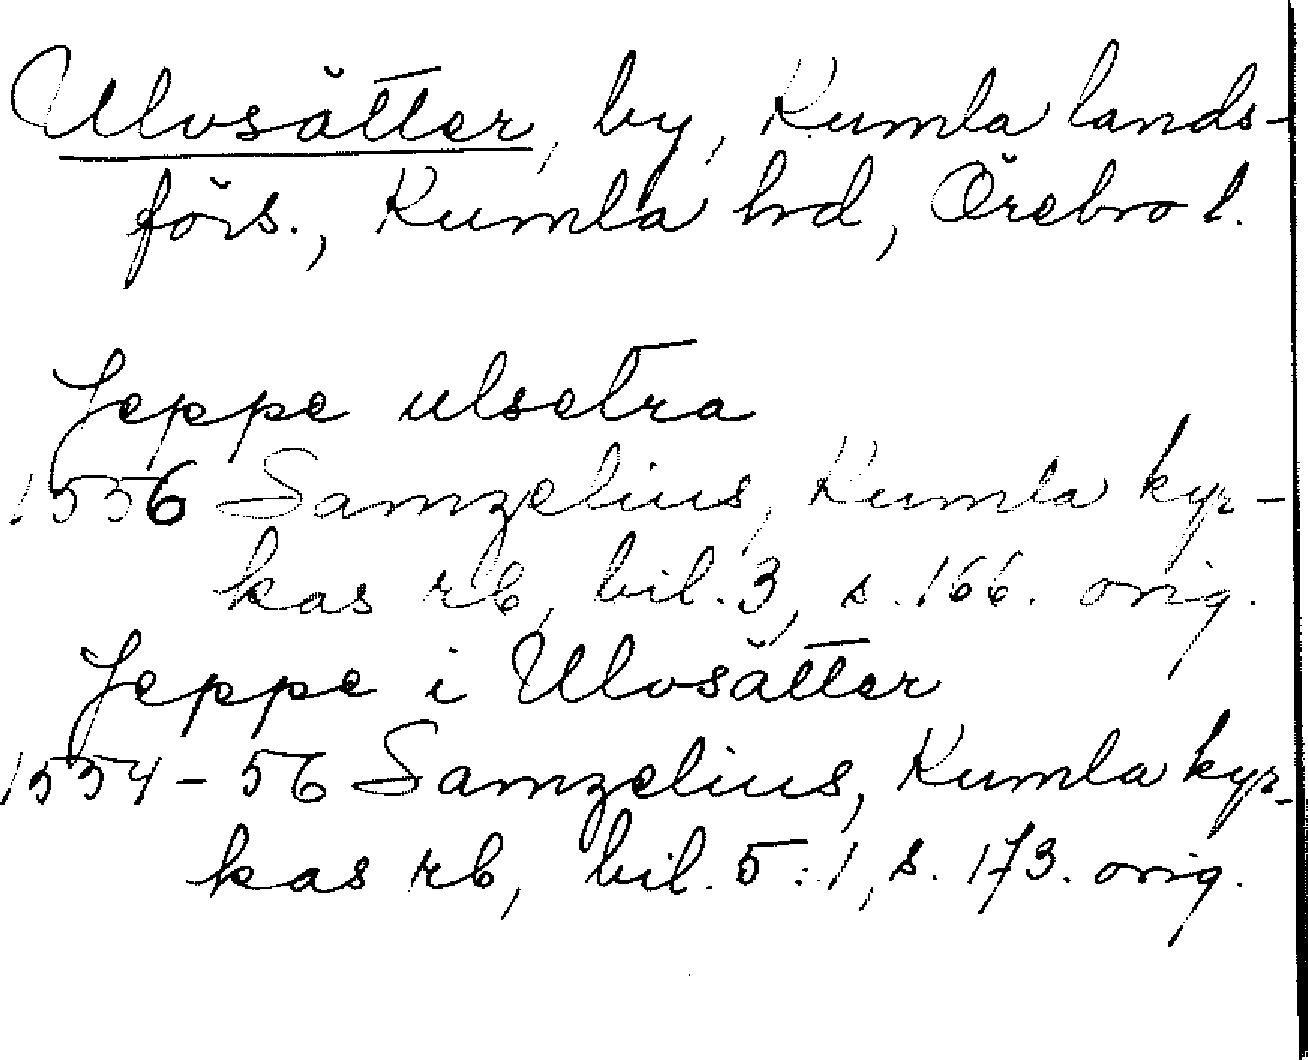 Ulvsätter, by, Kumla lands-
förs., Kumla hd, Örebro l.
Jeppe ulsetra
1556 Samzelius, Kumla kyr-
kas rb, bil. 3, s. 166. orig.
Jeppe i Ulvsätter
1554-56 Samzelius, Kumla kyr-
kas rb, bil. 5:1, s. 173. orig.